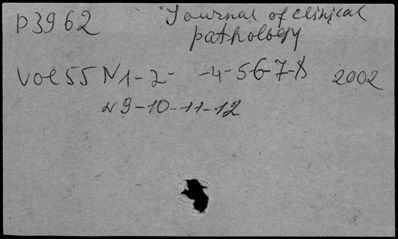 p3962 Journal of clinical
pathology
vol 55 N1-2- -4-5-6-7-8 2002
N9-10-11-12